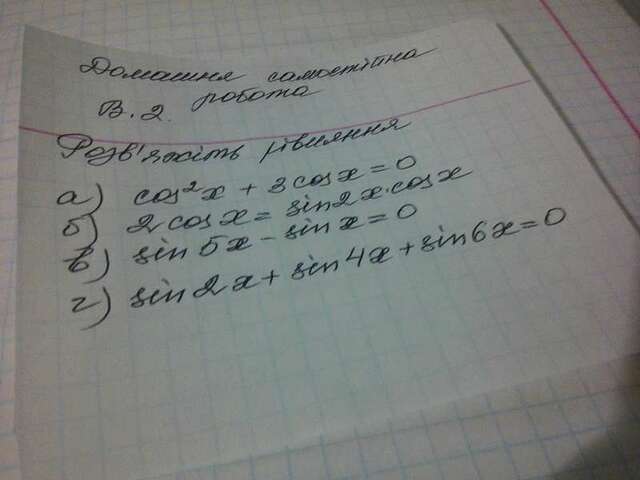 Домашня самостійна
В. 2. робота
Розв'яжіть рівняння
а) cos²x + 3cosx = 0
б) 2cosx = sin2x·cosx
в) sin5x - sinx = 0
г) sin2x + sin4x + sin6x = 0